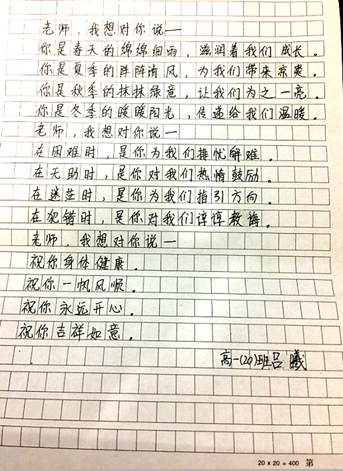 老师，我想对你说一
你是春天的绵绵细雨，滋润着我们成长。
你是夏季的阵阵清风，为我们带来凉爽。
你是秋季的抹抹绿意，让我们为之一亮。
你是冬季的暖暖阳光，传递给我们温暖。
老师，我想对你说一
在困难时，是你为我们排忧解难。
在无助时，是你对我们热情鼓励。
在迷茫时，是你为我们指引方向。
在犯错时，是你对我们谆谆教诲。
老师，我想对你说一
祝你身体健康。
祝你一帆风顺。
祝你永远开心。
祝你吉祥如意。
高一(20)班吕曦
20 x 20 = 400 第